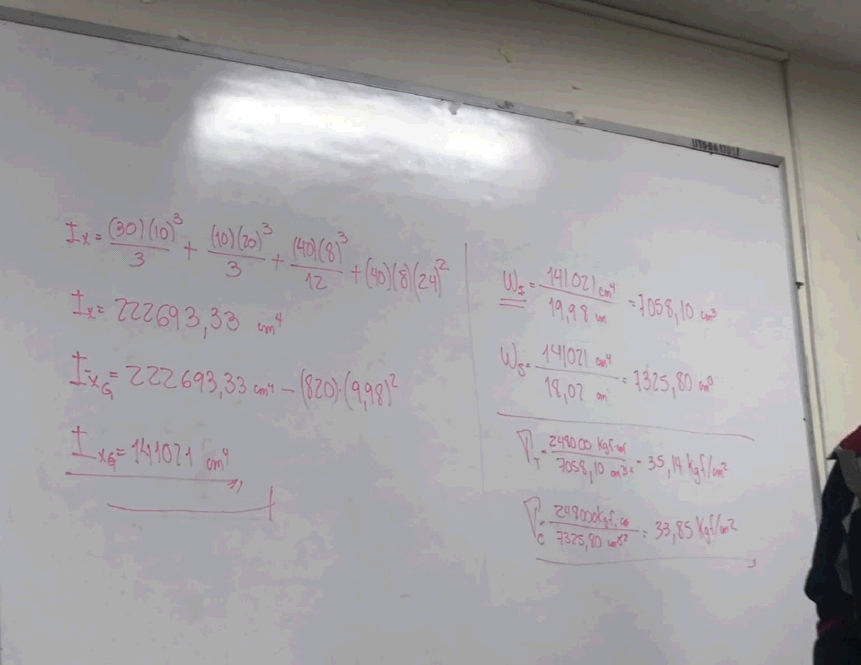 Ix = (30)(10)³/3 + (10)(20)³/3 + (40)(8)³/12 + (40)(8)(24)²
Ix = 222693,33 cm⁴
IxG = 222693,33 cm⁴ - (820)·(9,98)²
IxG = 141021 cm⁴
= 141021 cm⁴/19,98 cm = 7058,10 cm³
= 141021 cm⁴/18,02 cm = 7325,80 cm³
= 248000 kgf·cm/7058,10 = 35,14 kgf/cm²
= 248000 kgf·cm/7325,80 = 33,85 kgf/cm²